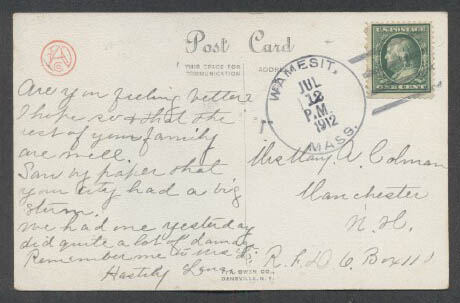 Post Card
THIS SPACE FOR
COMMUNICATION
ADDRESS
WAMESIT,
JUL
12
P.M.
1912
MASS.
U.S. POSTAGE
ONE CENT
Are you feeling better?
I hope so & that the
rest of your family
are well.
Saw by paper that
your city had a big
storm.
We had one yesterday
did quite a lot of damage.
Remember me to
Hastily
Mrs Mary A. Colman
Manchester
N. H.
R. F. D. 6. Box 110
F.A. OWEN CO.,
DANSVILLE, N.Y.